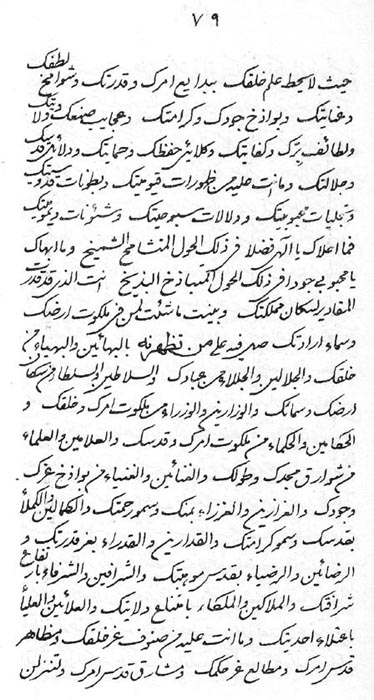 ٧٩
حيث لا يحيط علم خلقك ببدايع امرك و قدرتك و شوامخ لطفك
و عنايتك و بواذخ جودك و كرامتك و عجايب صنعك و ولايتك
و لطائف برّك و كفايتك و كلايئ حفظك و حمايتك و دلائل قدسك
و جلالتك و ما انت عليه من ظهورات قيوميتك و بطونات قدوسيتك
و تجليات محبوبيتك و دلالات سبوحيتك و شئونات ديموميتك
فما اعلاك يا الهى فضلا فى ذلك الحول المتشامخ الشميخ و ما ابهاك
يا محبوبى جودا فى ذلك الحول المتباذخ البذيخ انت الذى قد قدرت
المقادير لسكان مملكتك و بينت ما شئت لمن فى ملكوت ارضك
و سماء ارادتك صل فيه على من نظهرنه بالبهائين و البهياء من
خلقك و الجلالين و الجللاء من عبادك و السلاطين و السلطاء من سكان
ارضك و سمائك و الوزارين و الوزراء من ملكوت امرك و خلقك و
الحكامين و الحكماء من ملكوت امرك و قدسك و العلامين و العلماء
من شوارق مجدك و طولك و الغنائين و الغنياء من بواذخ عزك
و جودك و العزازين و العززاء بمنك و سمو رحمتك و الكمالين و الكملاء
بقدسك و سمو كرامتك و القدارين و القدراء بعز قدرتك و
الرضائين و الرضياء بقدس موهبتك و الشرافين و الشرفاء بارتفاع
شرافتك و الملاكين و الملكاء بامتناع ولايتك و العلائين و العلياء
باعتلاء احديتك و ما انت عليه من صنوف عز خلقك و مظاهر
قدس امرك و مطالع عز حكمك و مشارق قدس امرك و لتنزلن